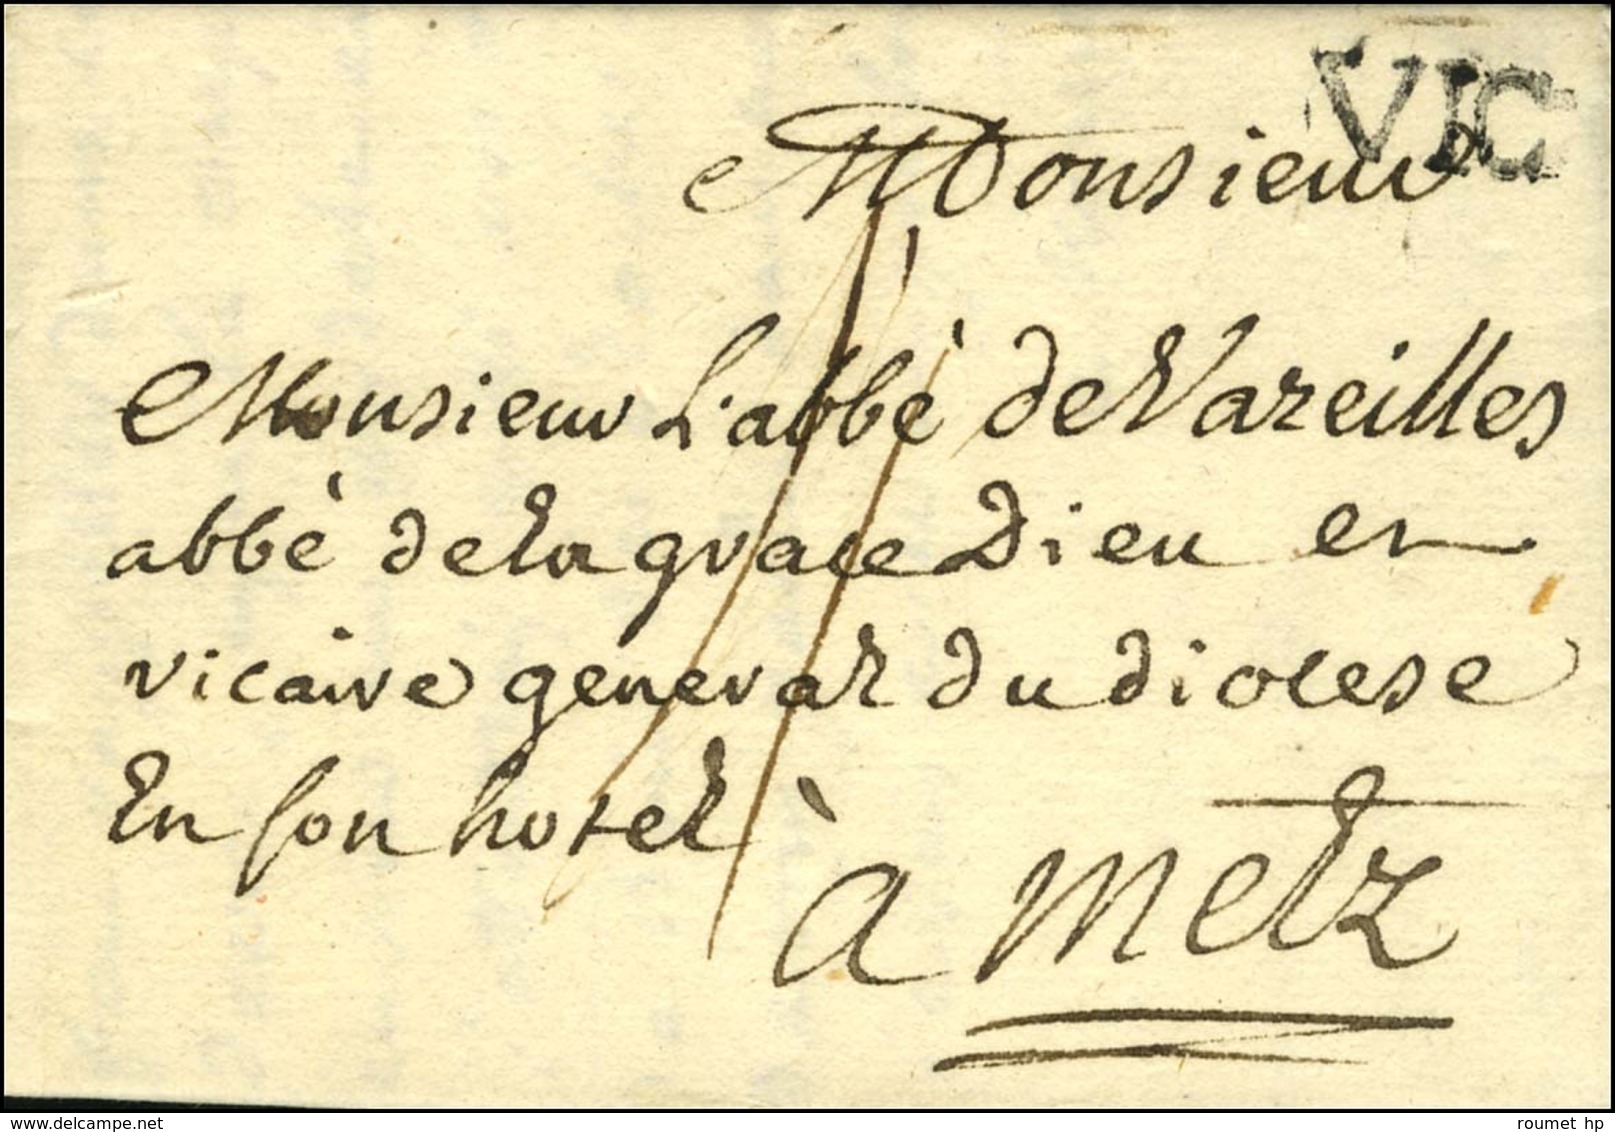 VIC
Monsieur
Monsieur L'abbè de Vareilles
abbè de la grace Dieu et
vicaire general du diocese
En son hotel à
a metz
delcampe.net
roumet hp